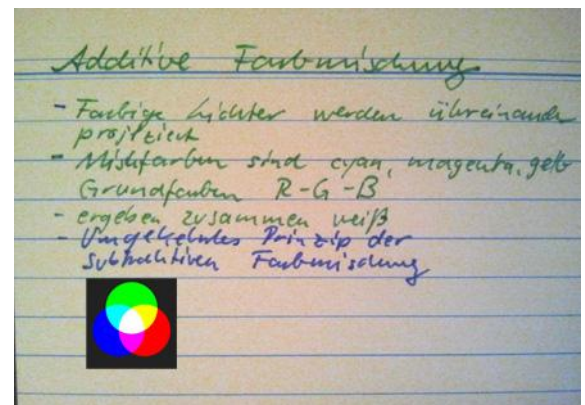 Additive Farbmischung
- Farbige Lichter werden übereinander
projiziert
- Mishfarben sind cyan, magenta, gelb
Grundfarben R-G-B
- ergeben zusammen weiß
- Umgekehrtes Prinzip der
Subtraktiven Farbmischung